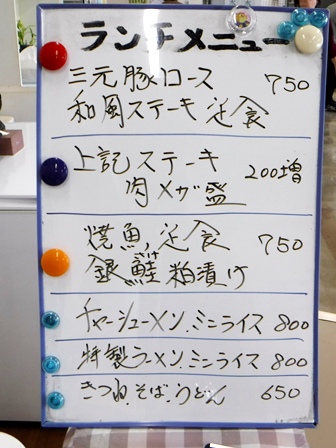 ランチメニュー
三元豚ロース 750
和風ステーキ定食
上記ステーキ 200増
肉メガ盛
焼魚定食 750
銀鮭粕漬け
チャーシューメン.ミニライス 800
特製ラーメン.ミニライス 800
きつね.そば.うどん 650